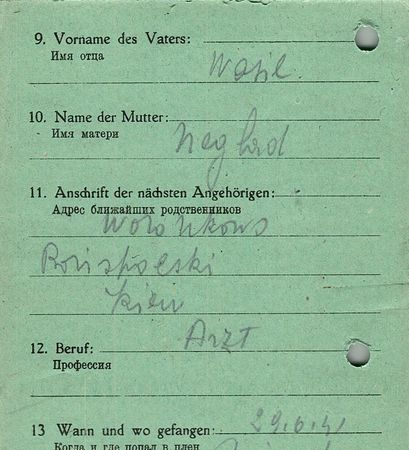 9. Vorname des Vaters:
Имя отца
Wasil.
10. Name der Mutter:
Имя матери
11. Anschrift der nächsten Angehörigen:
Адрес ближайших родственников
Kiew
Arzt
12. Beruf:
Профессия
29.6.41
13 Wann und wo gefangen:
Когда и где попал в плен